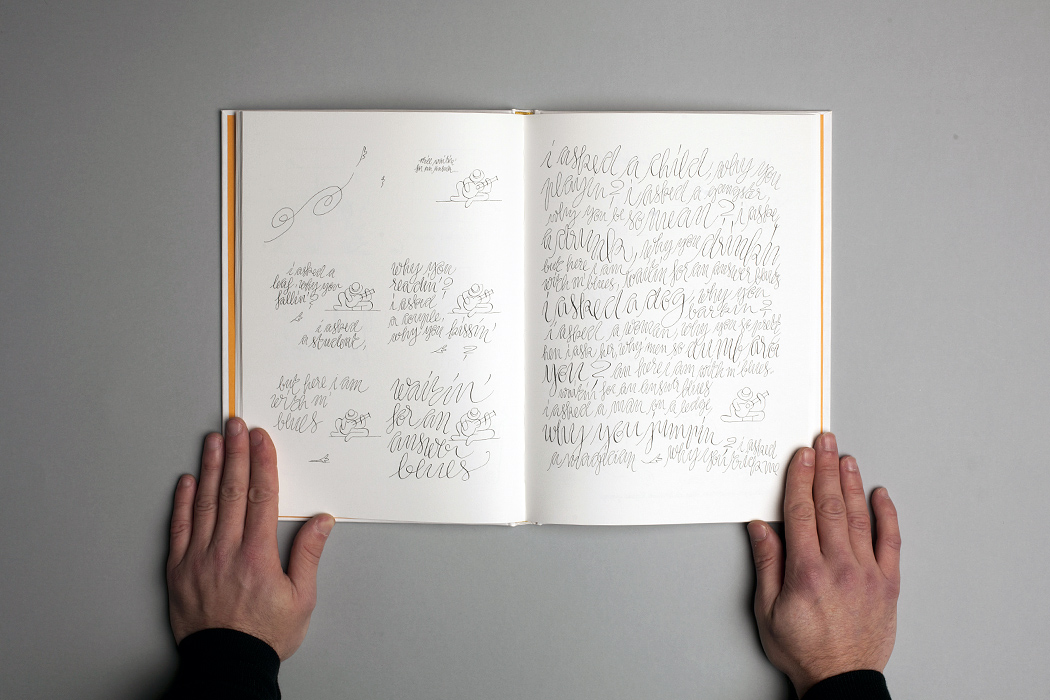 still waitin'
for an answer
i asked a
leaf, why you
fallin'?
i asked
a student,
why you
readin'?
i asked
a couple,
why you kissin'
?
but here i am
with m'
blues
waitin'
for an
answer
blues
i asked a child, why you
playin? i asked a gangster,
why you be so mean? i aske
a drunk, why you drinkin
but here i am, waitin for an answer blues
with m'blues,
i asked a dog, why you
barkin?
i asked a woman, why you so prett
hen i ask her, why men so dumb are
you? am here i am with m'blues
waitin' for an answer blues
i asked a man on a ledge,
why you jumpin
? i asked
a magician why you